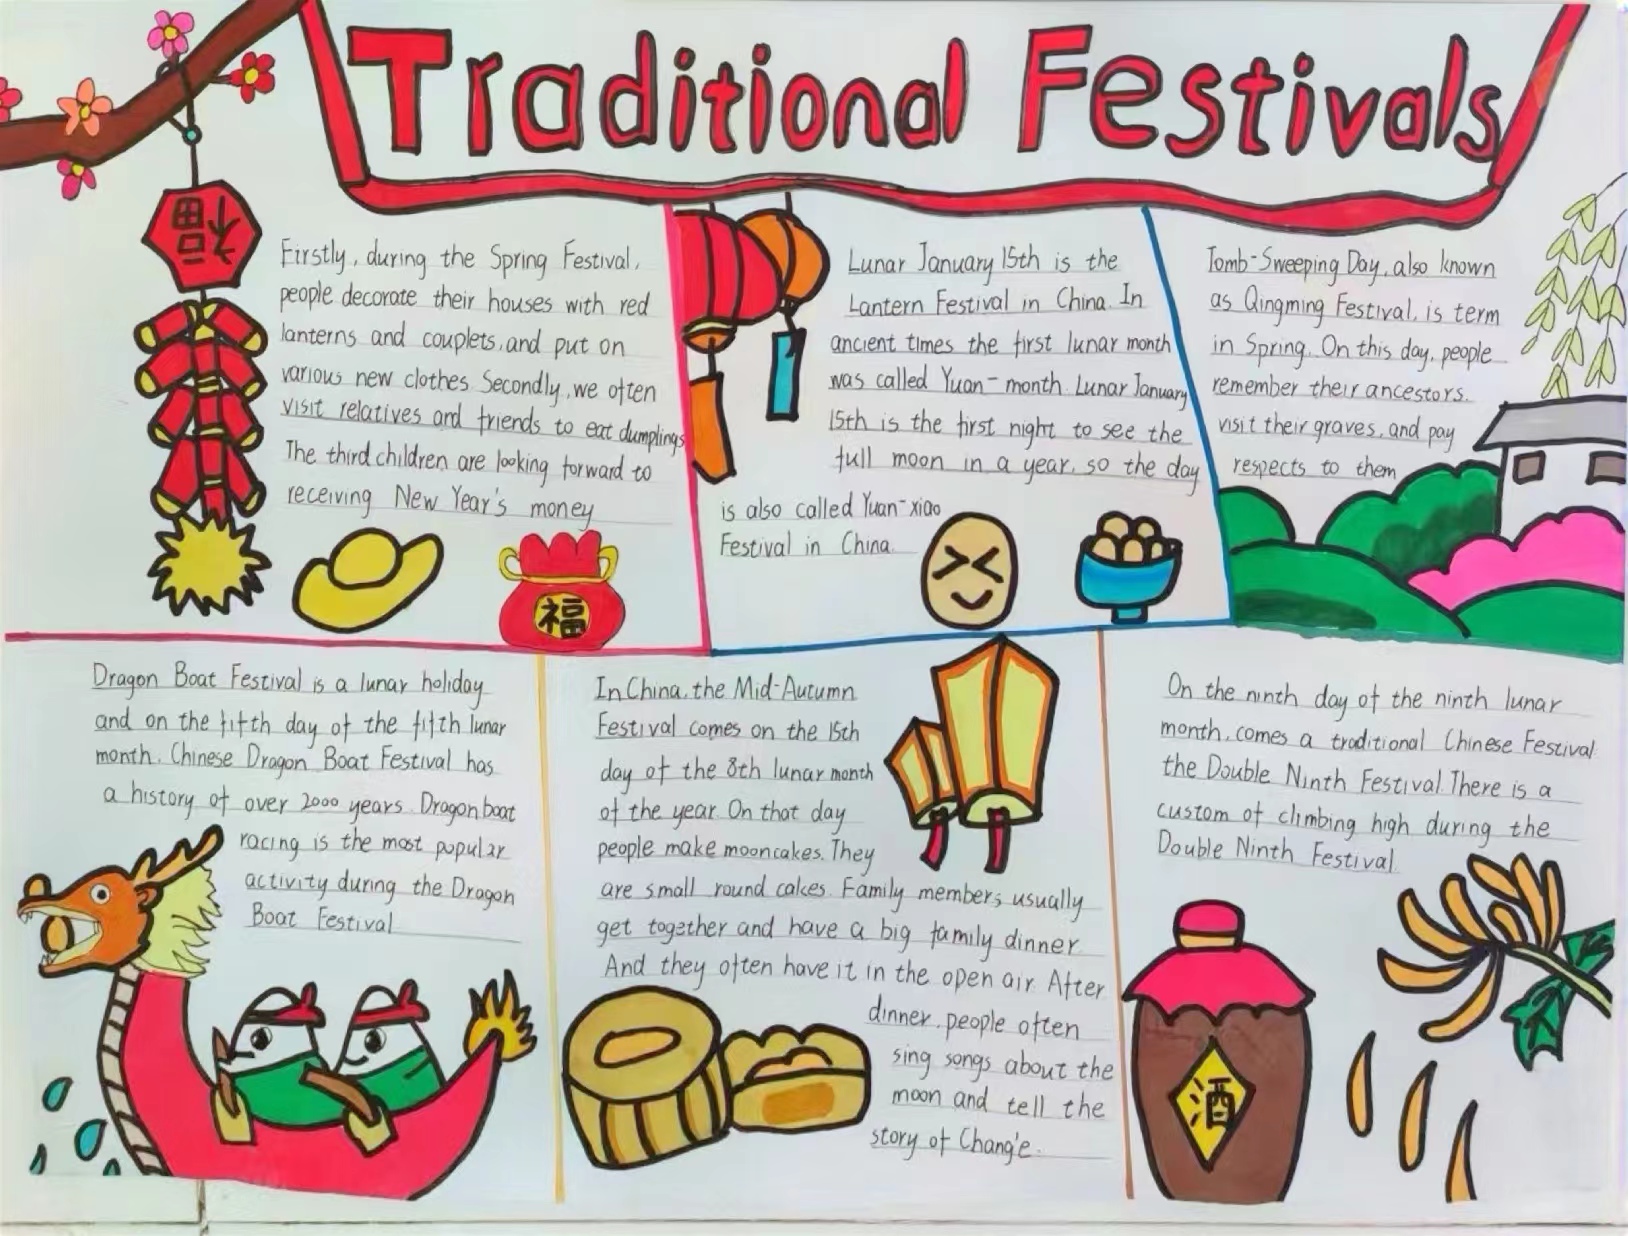 Traditional Festivals
福
Firstly, during the Spring Festival,
people decorate their houses with red
lanterns and couplets, and put on
various new clothes. Secondly, we often
visit relatives and friends to eat dumplings
The third children are looking forward to
receiving New Year's money
福
Lunar January 15th is the
Lantern Festival in China. In
ancient times the first lunar month
was called Yuan-month. Lunar January
15th is the first night to see the
full moon in a year, so the day
is also called Yuan-xiao
Festival in China.
Tomb-Sweeping Day, also known
as Qingming Festival, is term
in Spring. On this day, people
remember their ancestors.
visit their graves, and pay
respects to them
Dragon Boat Festival is a lunar holiday
and on the fifth day of the fifth lunar
month. Chinese Dragon Boat Festival has
a history of over 2000 years. Dragon boat
racing is the most popular
activity during the Dragon
Boat Festival
In China, the Mid-Autumn
Festival comes on the 15th
day of the 8th lunar month
of the year. On that day
people make mooncakes. They
are small round cakes. Family members usually
get together and have a big family dinner
And they often have it in the open air. After
dinner, people often
sing songs about the
moon and tell the
story of Chang'e.
On the ninth day of the ninth lunar
month, comes a traditional Chinese Festival
the Double Ninth Festival. There is a
custom of climbing high during the
Double Ninth Festival
酒